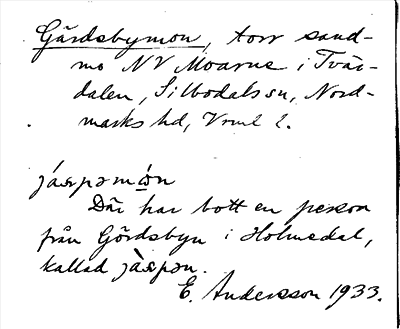 Gärdsbymon, torr sand-
mo NV Moarne i Tvär-
dalen, Silbodals sn, Nord-
marks hd, Vrml l.
jáərpəmòn
Där har bott en person
från Gördsbyn i Holmedal,
kallad jàərpən.
E. Andersson 1933.